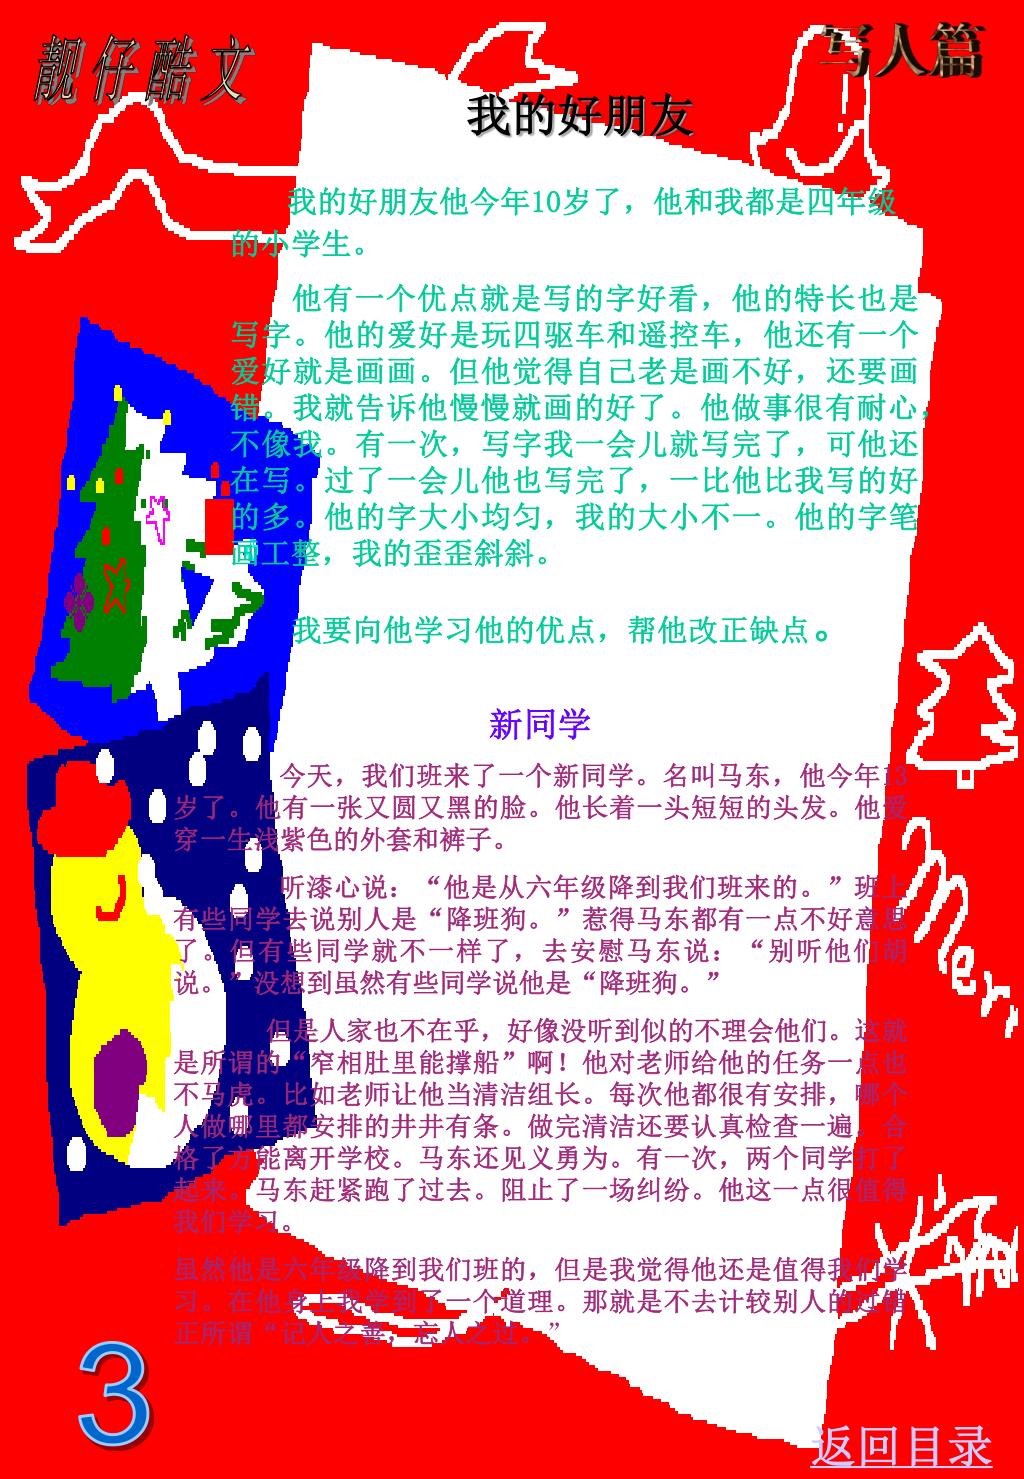 靓仔酷文
写人篇
我的好朋友
我的好朋友他今年10岁了，他和我都是四年级
的小学生。
他有一个优点就是写的字好看，他的特长也是
写字。他的爱好是玩四驱车和遥控车，他还有一个
爱好就是画画。但他觉得自己老是画不好，还要画
错。我就告诉他慢慢就画的好了。他做事很有耐心，
不像我。有一次，写字我一会儿就写完了，可他还
在写。过了一会儿他也写完了，一比他比我写的好
的多。他的字大小均匀，我的大小不一。他的字笔
画工整，我的歪歪斜斜。
我要向他学习他的优点，帮他改正缺点。
新同学
今天，我们班来了一个新同学。名叫马东，他今年13
岁了。他有一张又圆又黑的脸。他长着一头短短的头发。他爱
穿一生浅紫色的外套和裤子。
听漆心说：“他是从六年级降到我们班来的。”班上
有些同学去说别人是“降班狗。”惹得马东都有一点不好意思
了。但有些同学就不一样了，去安慰马东说：“别听他们胡
说。”没想到虽然有些同学说他是“降班狗。”
但是人家也不在乎，好像没听到似的不理会他们。这就
是所谓的“窄相肚里能撑船”啊！他对老师给他的任务一点也
不马虎。比如老师让他当清洁组长。每次他都很有安排，哪个
人做哪里都安排的井井有条。做完清洁还要认真检查一遍。合
格了方能离开学校。马东还见义勇为。有一次，两个同学打了
起来。马东赶紧跑了过去。阻止了一场纠纷。他这一点很值得
我们学习。
虽然他是六年级降到我们班的，但是我觉得他还是值得我们学
习。在他身上我学到了一个道理。那就是不去计较别人的过错
正所谓“记人之善，忘人之过。”
Mer
3
返回目录